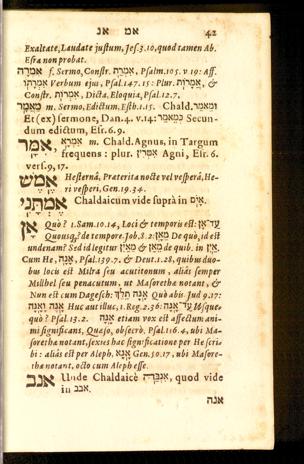 אמ אנ 42
Exaltate, Laudate justum, Jes. 3. 10, quod tamen Ab.
Esra non probat.
אִמְרָה f. Sermo, Constr. אִמְרַת, Psalm. 105. v 19: Aff.
אִמְרָתוֹ Verbum ejus, Psal. 147. 15: Plur. אֲמָרוֹת, &
Constr. אִמְרוֹת, Dicta, Eloquia, Psal. 12. 7.
מַאֲמָר m. Sermo, Edictum, Esth. 1. 15. Chald. וּמֵאמַר
Et (ex) sermone, Dan. 4. v. 14: כְּמֵאמַר Secun-
dum edictum, Esr. 6. 9.
אִמַּר m. Chald. אִמְּרָא Agnus, in Targum
frequens: plur. אִמְּרִין Agni, Esr. 6.
vers. 9, 17.
אֶמֶשׁ Hesternâ, Praterita nocte vel vesperâ, He-
ri vesperi, Gen. 19. 34.
אֶמְתָּנִי Chaldaicum vide suprà in אֵים.
אָן Quò? 1. Sam. 10. 14, Loci & temporis est: עַד־אָן
Quousq; de tempore. Job. 8. 2: מֵאָן De quò, id est
undenam? Sed id legitur מֵאַיִן & מֵאַיִן de quib. in אַיִן.
Cum He, אָנָה, Psal. 139. 7. & Deut. 1. 28, quibus duo-
bus locis est Milrâ seu acutitonum, aliàs semper
Millhel seu penacutum, ut Masoretha notant, &
Nun est cum Dagesch: אָנָה תֵלֵךְ Quò abis Jud 9. 17:
אָנֶה וָאָנָה Huc aut illuc, 1. Reg. 2. 36: עַד־אָנָה Usque-
quò? Psal. 13. 2. אָנָּה etiam vox est affectum ani-
mi significans, Quaso, obsecrò, Psal. 116. 4, ubi Ma-
soretha notant, sexies hac significatione per He scri-
bi: aliàs est per Aleph, אָנָּא Gen. 50. 17, ubi Masore-
tha notant, octo cum Aleph esse.
אנב Unde Chaldaicè אִנְבֵּהּ, quod vide
in אבב.
אנה